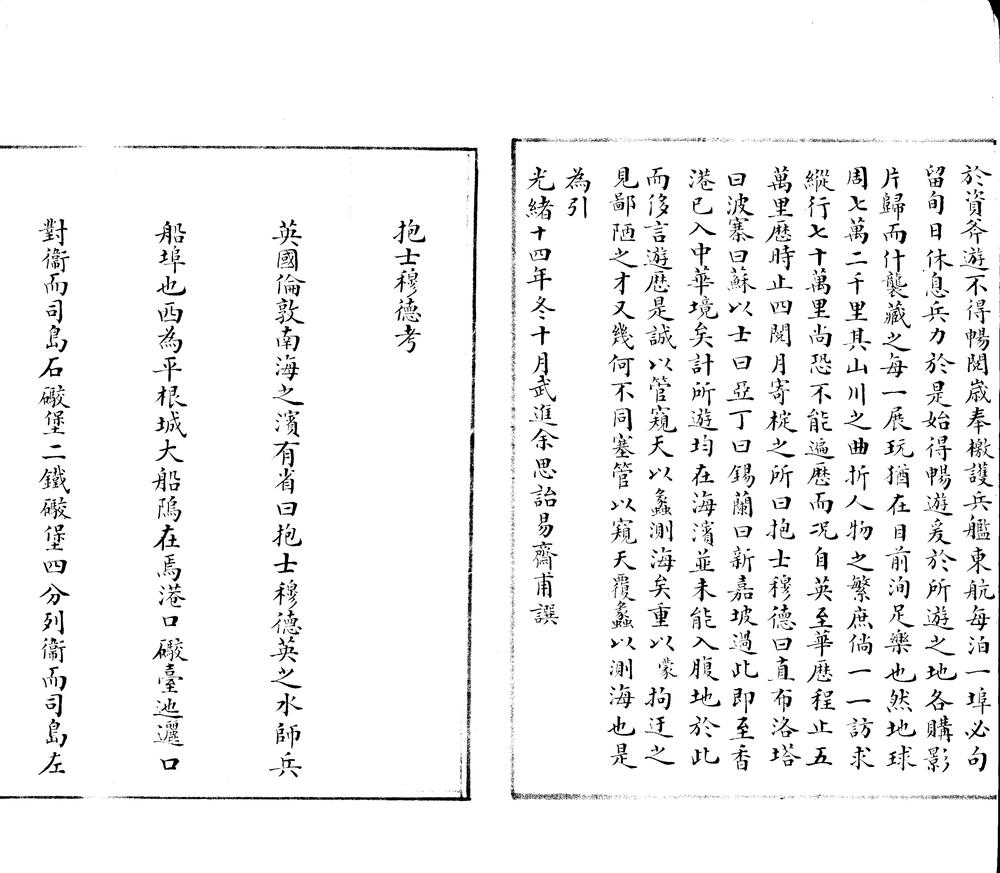 於資斧遊不得暢閱歲奉檄護兵艦東航每泊一埠必句
留旬日休息兵力於是始得暢遊爰於所遊之地各購影
片歸而什襲藏之每一展玩猶在目前洵足樂也然地球
周七萬二千里其山川之曲折人物之繁庶倘一一訪求
縱行七十萬里尚恐不能遍歷而况自英至華歷程止五
萬里歷時止四閱月寄椗之所曰抱士穆德曰直布洛塔
曰波塞曰蘇以士曰亞丁曰錫蘭曰新嘉坡過此即至香
港已入中華境矣計所遊均在海濱並未能入腹地於此
而侈言遊歷是誠以管窺天以蠡測海矣重以蒙拘迂之
見鄙陋之才又幾何不同塞管以窺天覆蠡以測海也是
為引
光緒十四年冬十月武進余思詒易齋甫譔
抱士穆德考
英國倫敦南海之濱有省曰抱士穆德英之水師兵
船埠也西為平根城大船隖在焉港口礮臺迤邐口
對衞而司島石礮堡二鐵礮堡四分列衞而司島左